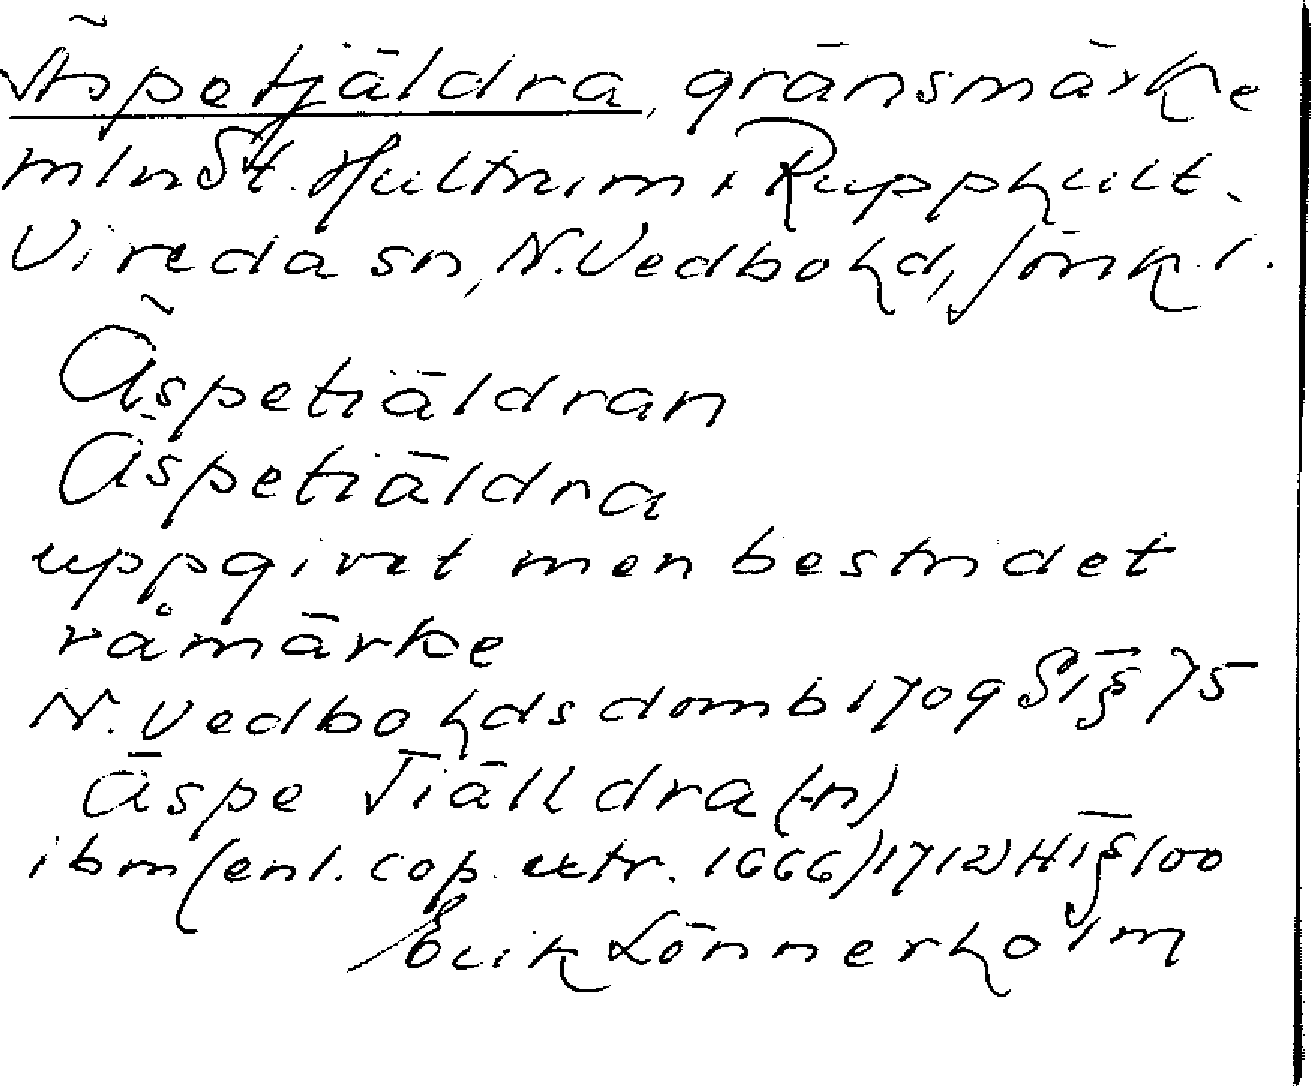 Äspetjäldra, gränsmärke
mln St. Hultrum, Rupphult.
Vireda sn, N. Vedbo hd, Jönk. l.
Äspetiäldran
Äspetiäldra
uppgivet men bestridet
råmärke
N. Vedbo hds domb 1709 ST § 75
Äspe Tiälldra(-n)
ibm (enl. cop. extr. 1666) 1712 HT § 100
Erik Lönnerholm